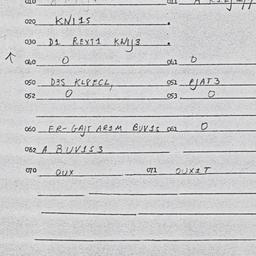 020 KNI15
030 D1 REXT1 KNJJ3
040 0 041 0
050 051 PJAT3
052 0 053 0
060 ER- GAJT AR1M BUV1S 061 0
062 A BUV1S3
070 OUX 071 OUX1T